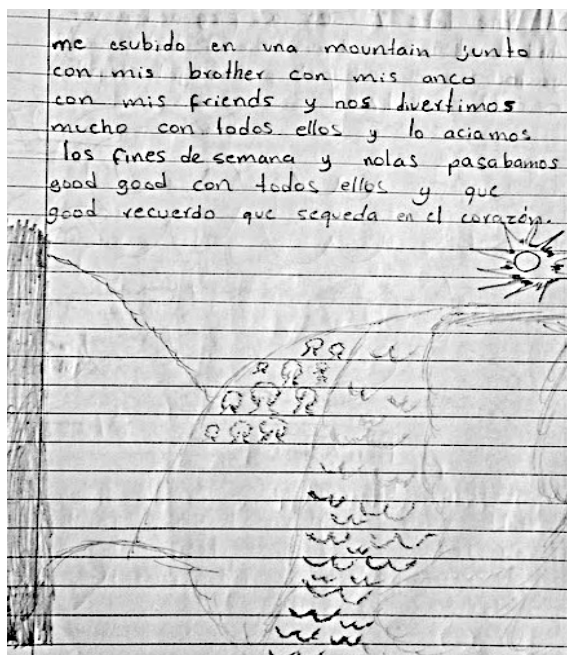 me esubido en una mountain junto
con mis brother con mis anco
con mis friends y nos divertimos
mucho con todos ellos y lo aciamos
los fines de semana y nolas pasabamos
good good con todos ellos y que
good recuerdo que sequeda en el corazón.